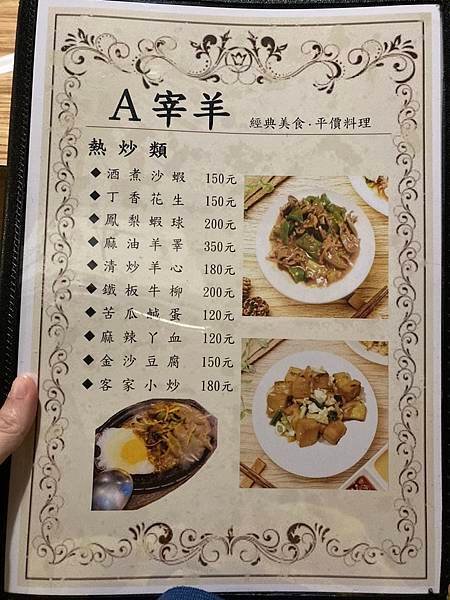 A宰羊 經典美食·平價料理
熱炒類
◆酒煮沙蝦 150元
◆丁香花生 150元
◆鳳梨蝦球 200元
◆麻油羊睪 350元
◆清炒羊心 180元
◆鐵板牛柳 200元
◆苦瓜鹹蛋 120元
◆麻辣丫血 120元
◆金沙豆腐 150元
◆客家小炒 180元